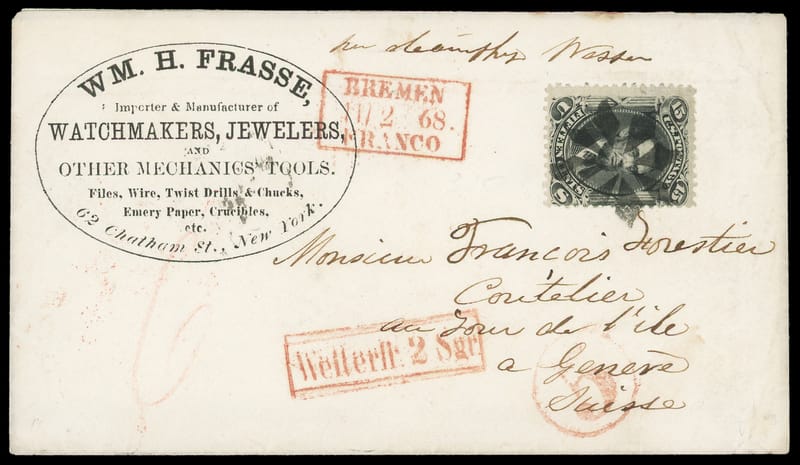 WM. H. FRASSE,
Importer & Manufacturer of
WATCHMAKERS, JEWELERS,
AND
OTHER MECHANICS' TOOLS.
Files, Wire, Twist Drills & Chucks,
Emery Paper, Crucibles,
etc.
62 Chatham St., New York.
per steamship Weser
BREMEN
2 68.
FRANCO
15
U
S
15
Monsieur François Forestier
Coutelier
au Tour de l'île
a Genève
Suisse
Weiterfr. 2 Sgr
6